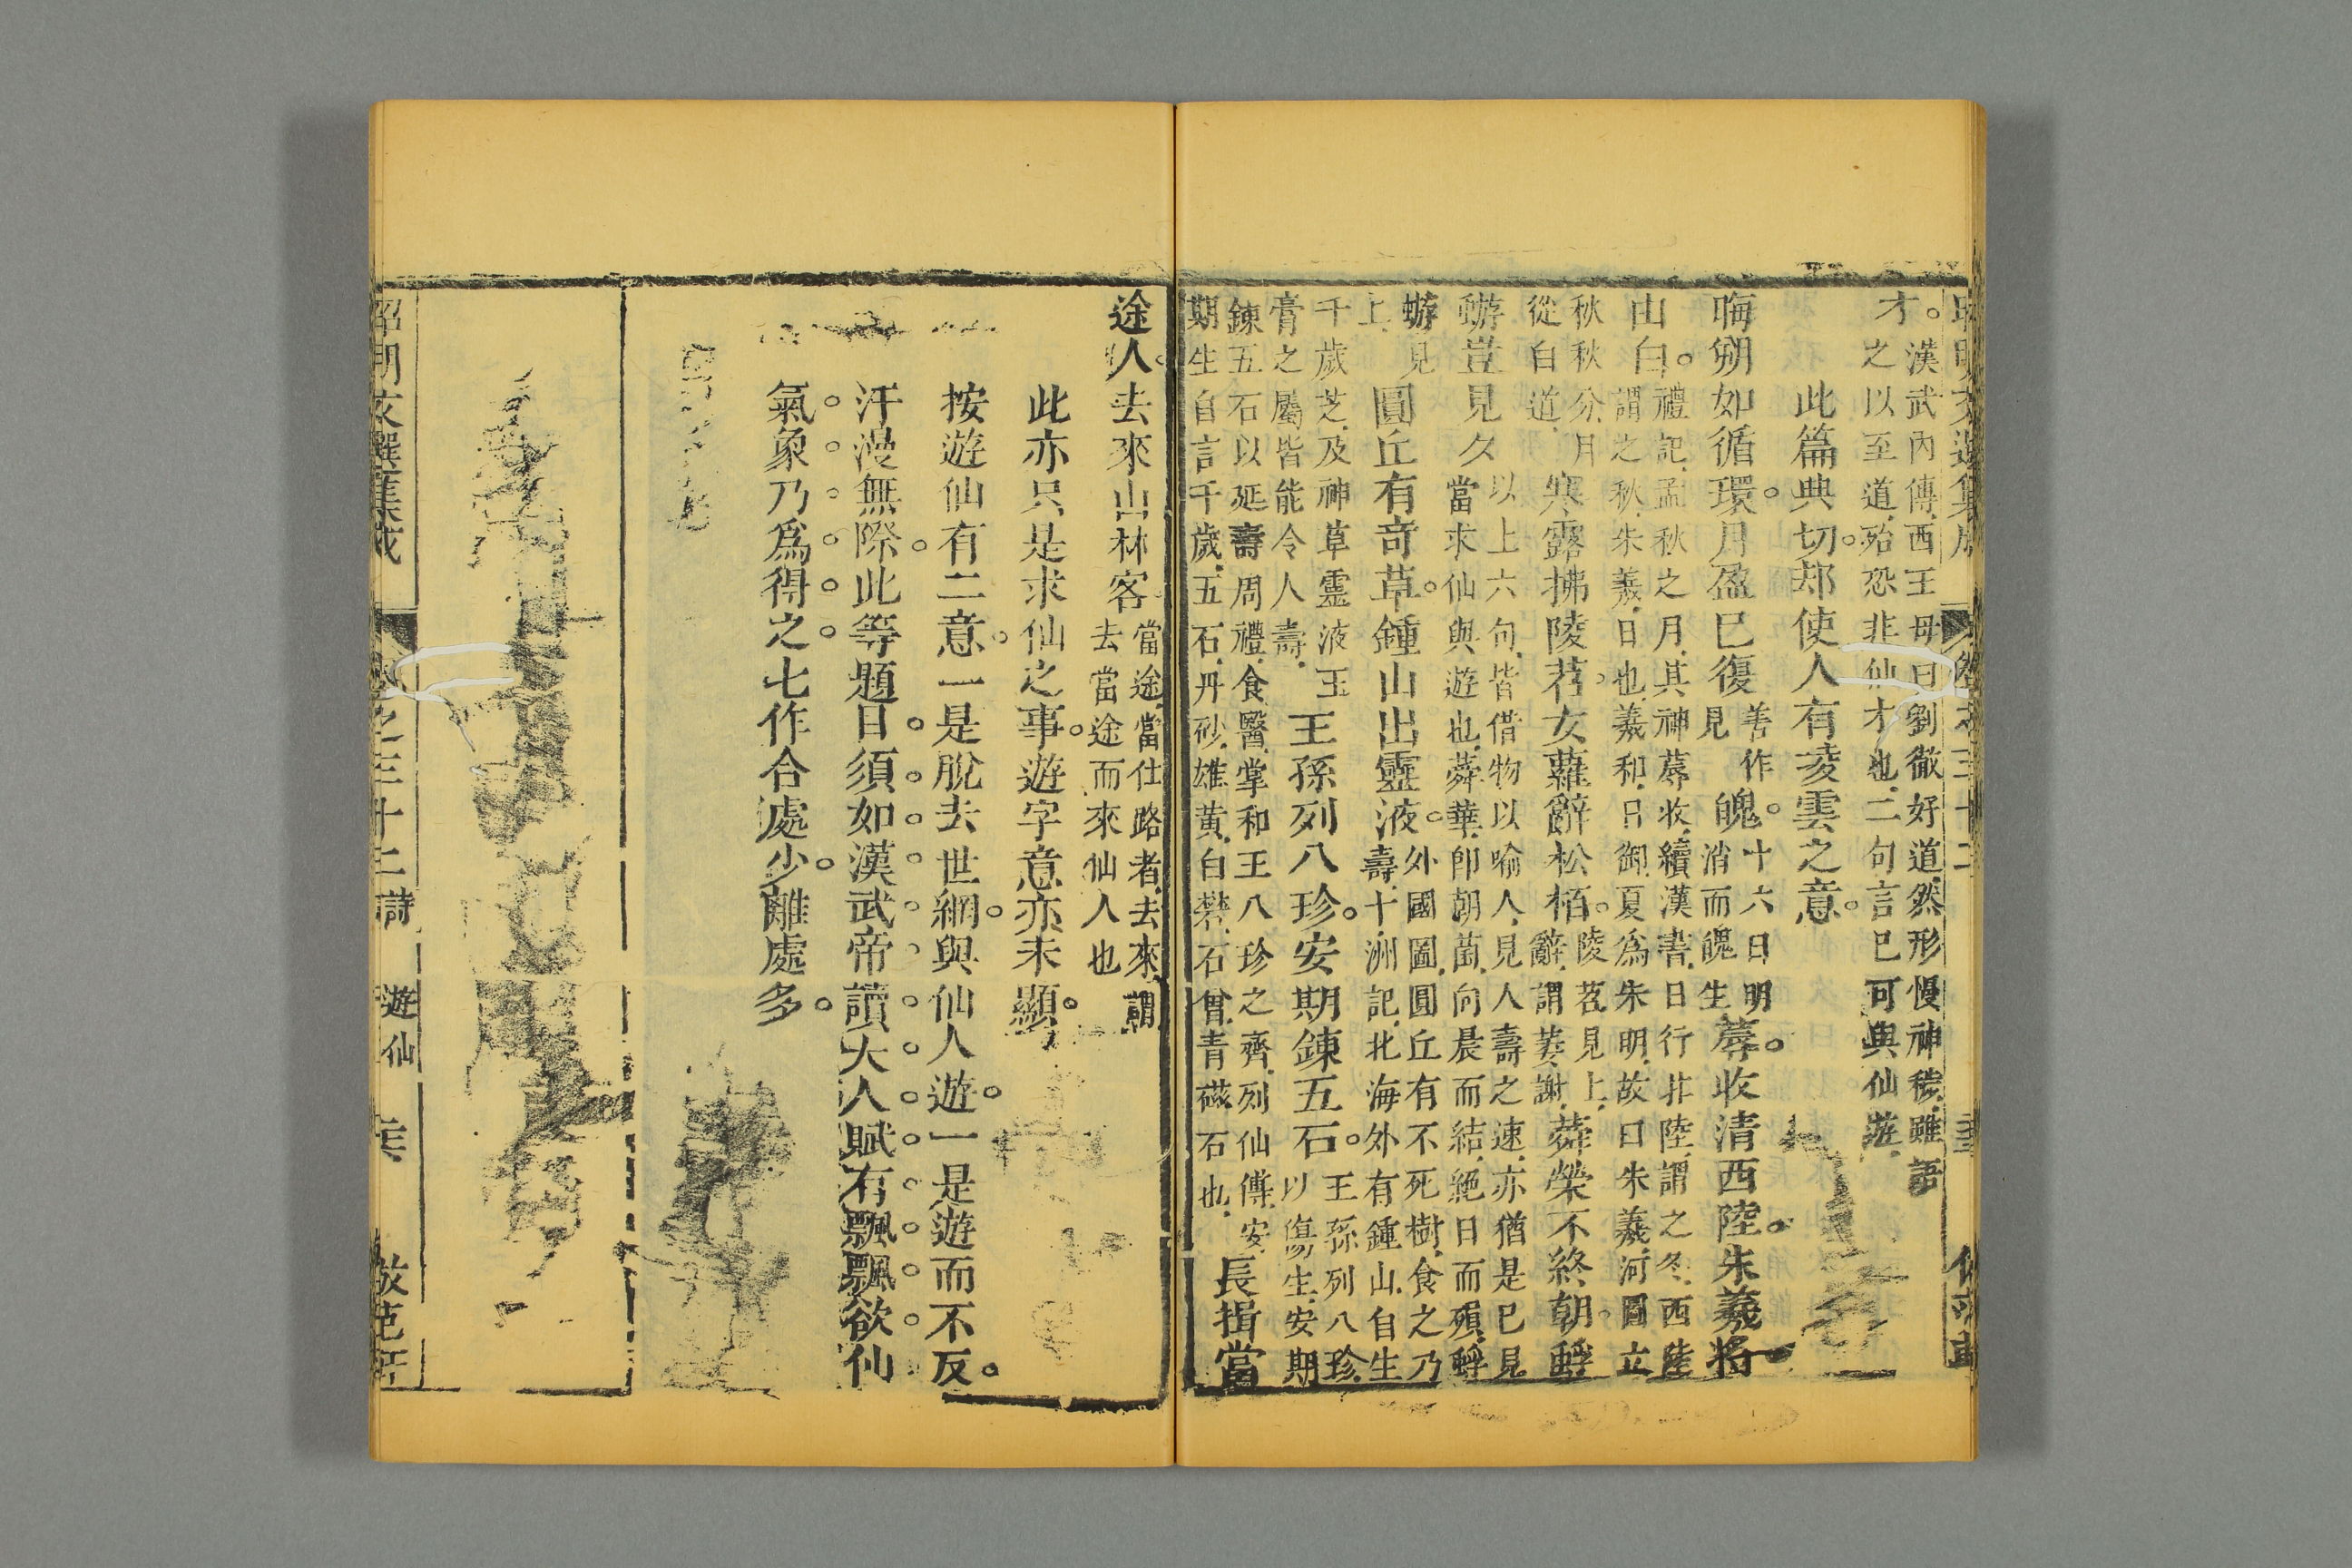 昭明文選集成 卷之三十二
才。漢武內傳西王母曰劉徹好道然形慢神穢雖語
之以至道殆恐非仙才也二句言已可與仙遊
此篇典切。却使人有凌雲之意。
晦朔如循環。月盈已復善作見魄。十六日明消而魄生蓐收清西陸。朱羲將
由白。禮記孟秋之月其神蓐收續漢書日行北陸謂之冬西陸
謂之秋朱羲日也羲和日御夏爲朱明故曰朱羲河圖立
秋秋分月從白道寒露拂陵苕。女蘿辭松栢。陵苕見上辭謂萎謝蕣榮不終朝。蜉
蝣豈見夕以上六句皆借物以喻人見人壽之速亦猶是已見
當求仙與遊也蕣華卽朝菌向晨而結絕日而殞蜉
蝣見上圓丘有奇草。鍾山出靈液。外國圖圓丘有不死樹食之乃
壽十洲記北海外有鍾山自生
千歲芝及神草靈液玉膏之屬皆能令人壽王孫列八珍。安期鍊五石。王孫列八珍以傷生安期
鍊五石以延壽周禮食醫掌和王八珍之齊列仙傳安
期生自言千歲五石丹砂雄黃白礬石曾青磁石也長揖當
途人。去來山林客當途當仕路者去來謂去當途而來仙人也
此亦只是求仙之事。遊字意亦未顯。
按遊仙有二意。一是脫去世網。與仙人遊。一是遊而不反。
汗漫無際。此等題目。須如漢武帝讀大人賦有飄飄欲仙
氣象乃爲得之。七作合處少。離處多。
昭明文選集成 卷之三十二詩 遊仙